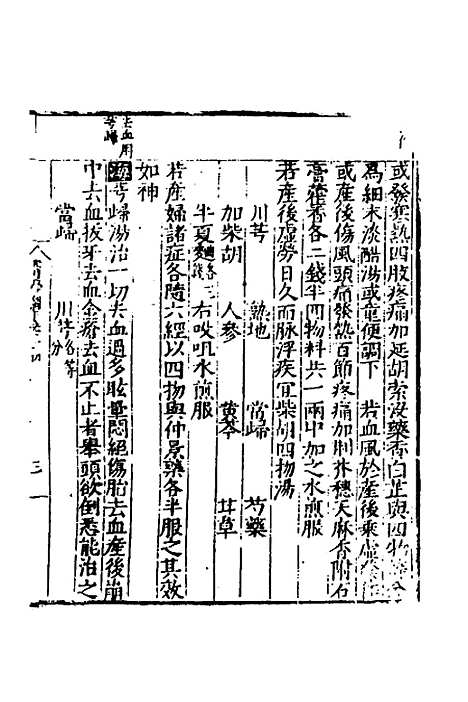 或發寒熱四肢疼痛加延胡索沒藥香白芷與四物等分
為細末淡醋湯或童便調下　若血風於產後乘虛
或產後傷風頭痛發熱百節疼痛加荆芥穗天麻香附石
膏藿香各二錢半四物料共一兩中加之水煎服
若產後虛勞日久而脉浮疾宜柴胡四物湯
川芎　熟地　當歸　芍藥
加柴胡　人參　黃芩　甘草
半夏麯各三錢右㕮咀水煎服
若產婦諸症各隨六經以四物與仲景藥各半服之其效
如神
去血用
芎歸
芎歸湯治一切去血過多眩暈悶絕傷胎去血產後崩
中去血拔牙去血金瘡去血不止者舉頭欲倒悉能治之
當歸　川芎各等分
三